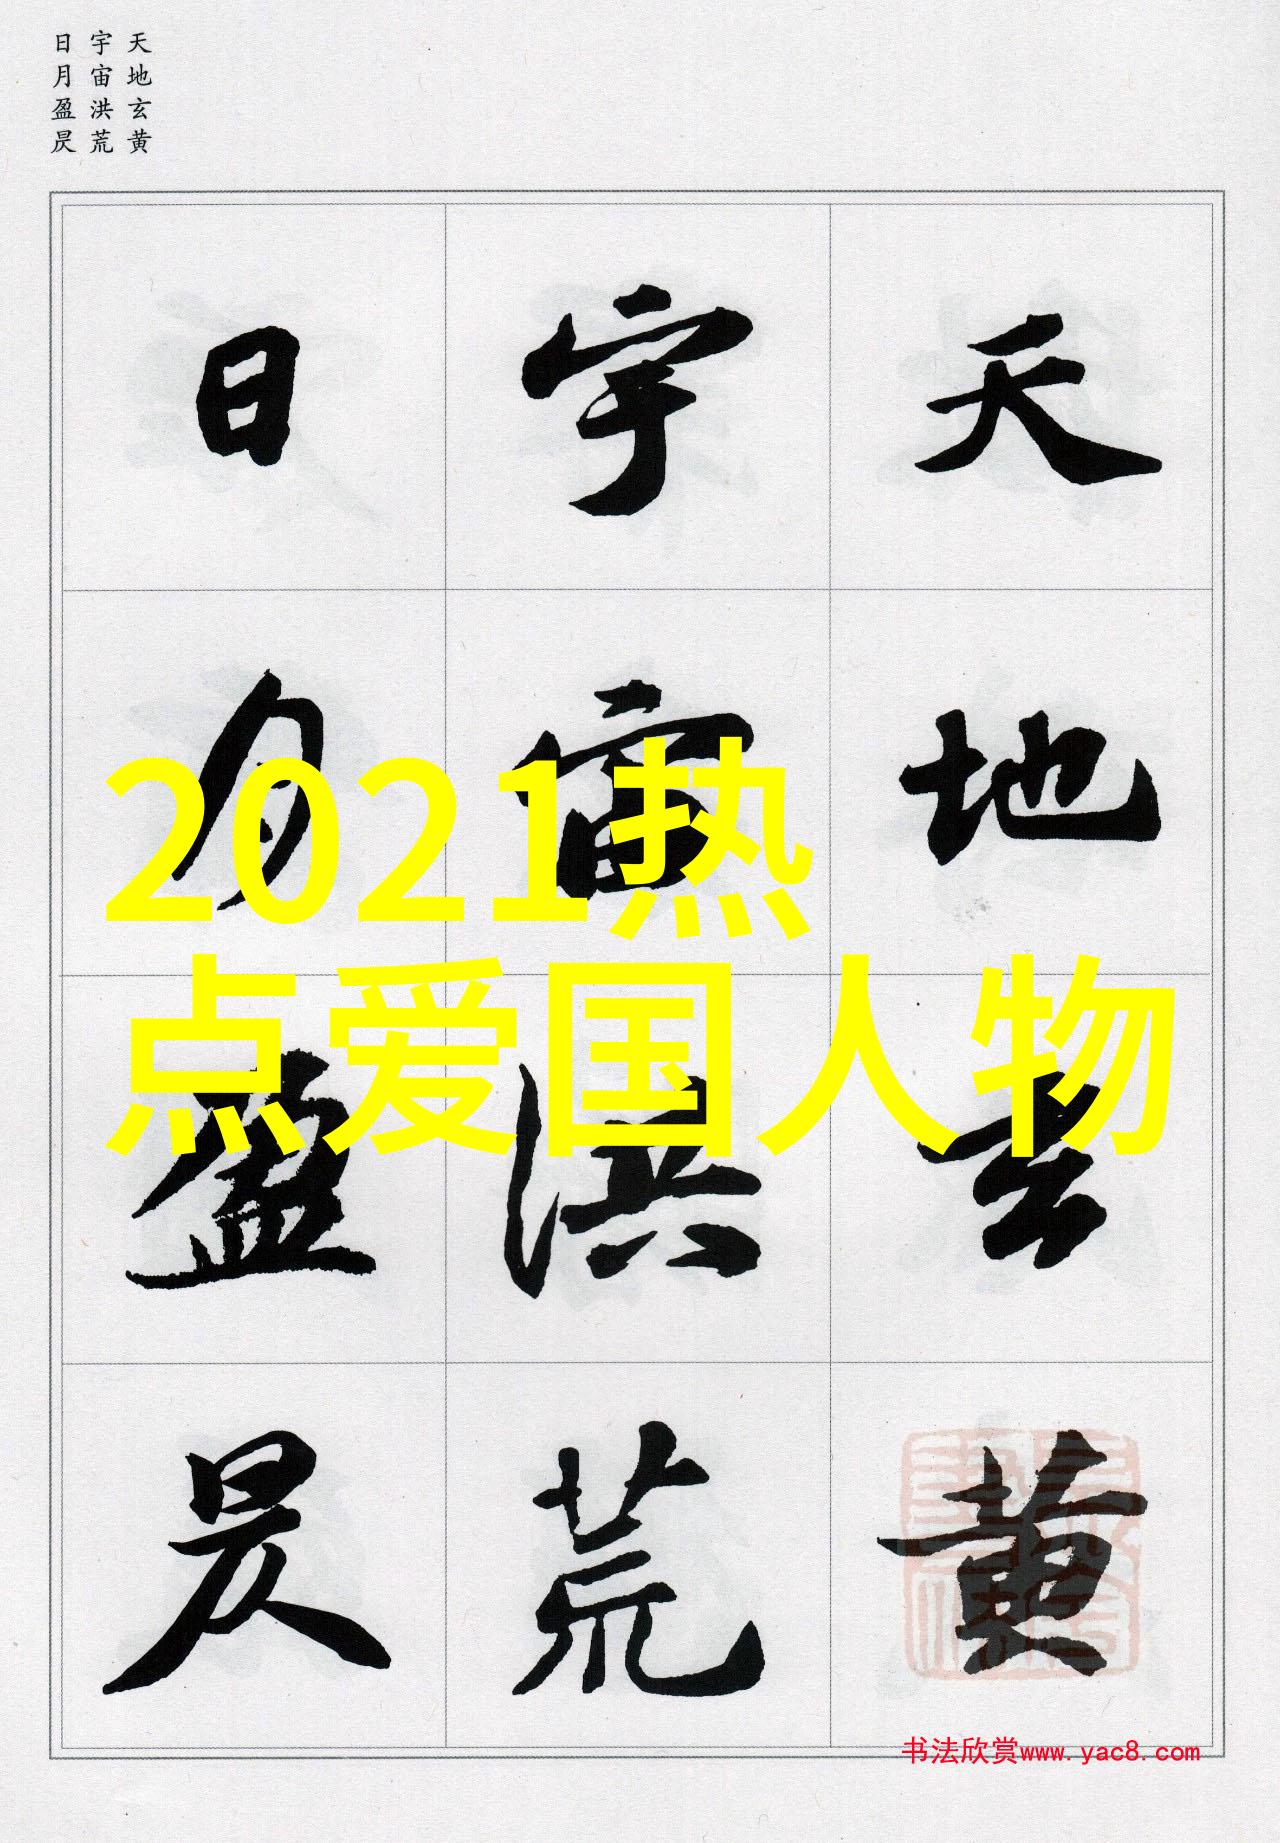 天地玄黄
宇宙洪荒
日月盈昃
天地玄黄
宇宙洪荒
日月盈昃
2021热
点爱国人物
书法欣赏www.yac8.com